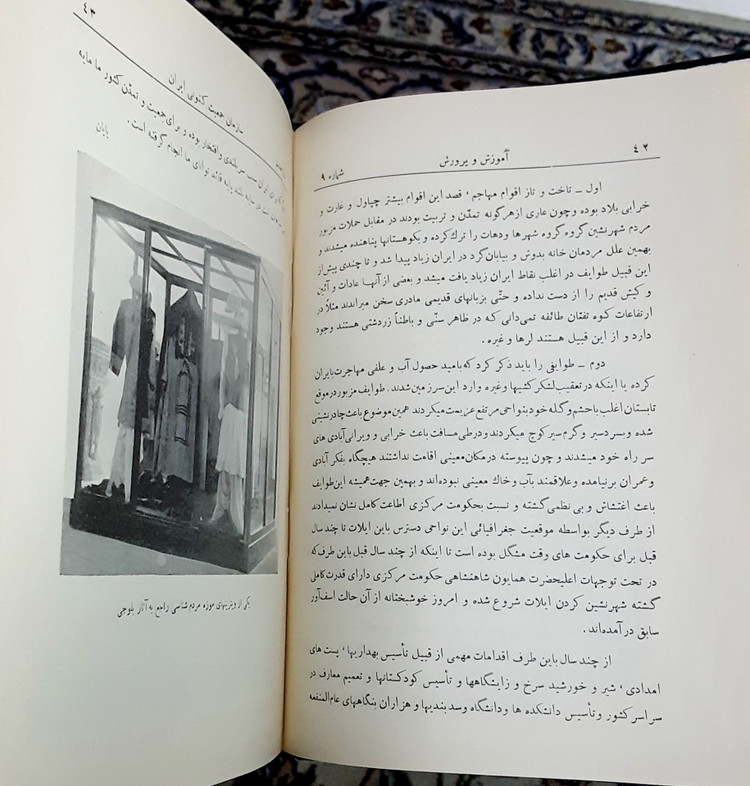 ٤٢
آموزش و پرورش
شماره ٩
اول ــ تاخت و تاز اقوام مهاجم ، قصد این اقوام بیشتر چپاول و غارت و
خرابی بلاد بوده و چون عاری از هرگونه تمدّن و تربیت بودند در مقابل حملات مزبور
مردم شهرنشین گروه گروه شهرها ودهات را ترك کرده و بکوهستانها پناهنده میشدند و
بهمین علل مردمان خانه بدوش و بیابان‌گرد در ایران زیاد پیدا شد و تا چندی پیش از
این قبیل طوایف در اغلب نقاط ایران زیاد یافت میشد و بعضی از آنها عادات و آئین
و کیش قدیم را از دست نداده و حتّی بزبانهای قدیمی مادری سخن میراندند مثلاً در
ارتفاعات کوه تفتان طائفه تمی‌دانی که در ظاهر سنّی و باطناً زردشتی هستند وجود
دارد و از این قبیل هستند لرها و غیره .
دوم ــ طوایفی را باید ذکر کرد که بامید حصول آب و علفی مهاجرت بایران
کرده یا اینکه در تعقیب لشکر کشیها وغیره وارد این سرزمین شدند. طوایف مزبور در موقع
تابستان اغلب باحشم وگله خود بنواحی مرتفع عزیمت میکردند همین موضوع باعث چادرنشینی
شده وبسردسیر و گرم سیر کوچ میکردند ودرطی مسافت باعث خرابی و ویرانی‌آبادی های
سر راه خود میشدند و چون پیوسته درمکان معینی اقامت نداشتند هیچگاه بفکر آبادی
وعمران برنیامده وعلاقمند بآب وخاك معینی نبوده‌اند و بهمین جهت همیشه این‌طوایف
باعث اغتشاش و بی نظمی گشته و نسبت بحکومت مرکزی اطاعت کامل نشان نمیدادند
از طرف دیگر بواسطه موقعیت جغرافیائی این نواحی دسترس باین ایلات تا چند سال
قبل برای حکومت های وقت مشگل بوده است تا اینکه از چند سال قبل باین طرف که
در تحت توجهات اعلیحضرت همایون شاهنشاهی حکومت مرکزی دارای قدرت کامل
گشته شهرنشین کردن ایلات شروع شده و امروز خوشبختانه از آن حالت اسف‌آور
سابق درآمده‌اند .
از چند سال باین طرف اقدامات مهمی از قبیل تأسیس بهداریها ، پست های
امدادی ، شیر و خورشید سرخ و زایشگاهها و تأسیس کودکستانها و تعمیم معارف در
سراسر کشور و تأسیس دانشکده ها ودانشگاه وسد بندیها و هزاران بنگاههای عام‌المنفعه
٤٣
سازمان جمعیت کنونی ایران
برای ایران سبب سربلندی و افتخار بوده و برای جمعیت و تمدّن کشور ما مایه
بلند پایه قائد توانای ما انجام گرفته است .
پایان
یکی از ویترینهای موزه مردم شناسی راجع به آثار بلوچی